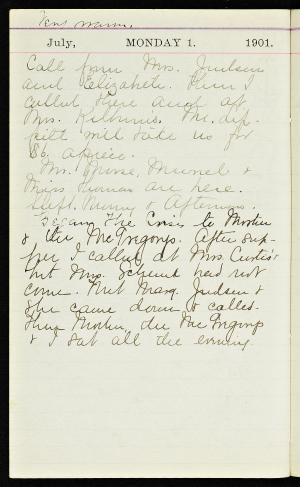 Very warm.
July, MONDAY 1. 1901.
Call from Mrs. Judson
and Elizabeth. Then I
called there and at
Mrs. Kilburn's. Mr.
will take us for
$6. apiece.
Mr. Morse, Muriel &
Miss Thomas are here.
Left Morning & Afternoon.
Began The Crisis to Mother
& the McGregorys. After sup-
per I called at Mrs Curtis'
but Mrs. had not
come. Met Marg. Judson &
she came down & called.
Then Mother, the McGregorys
& I sat all the evening